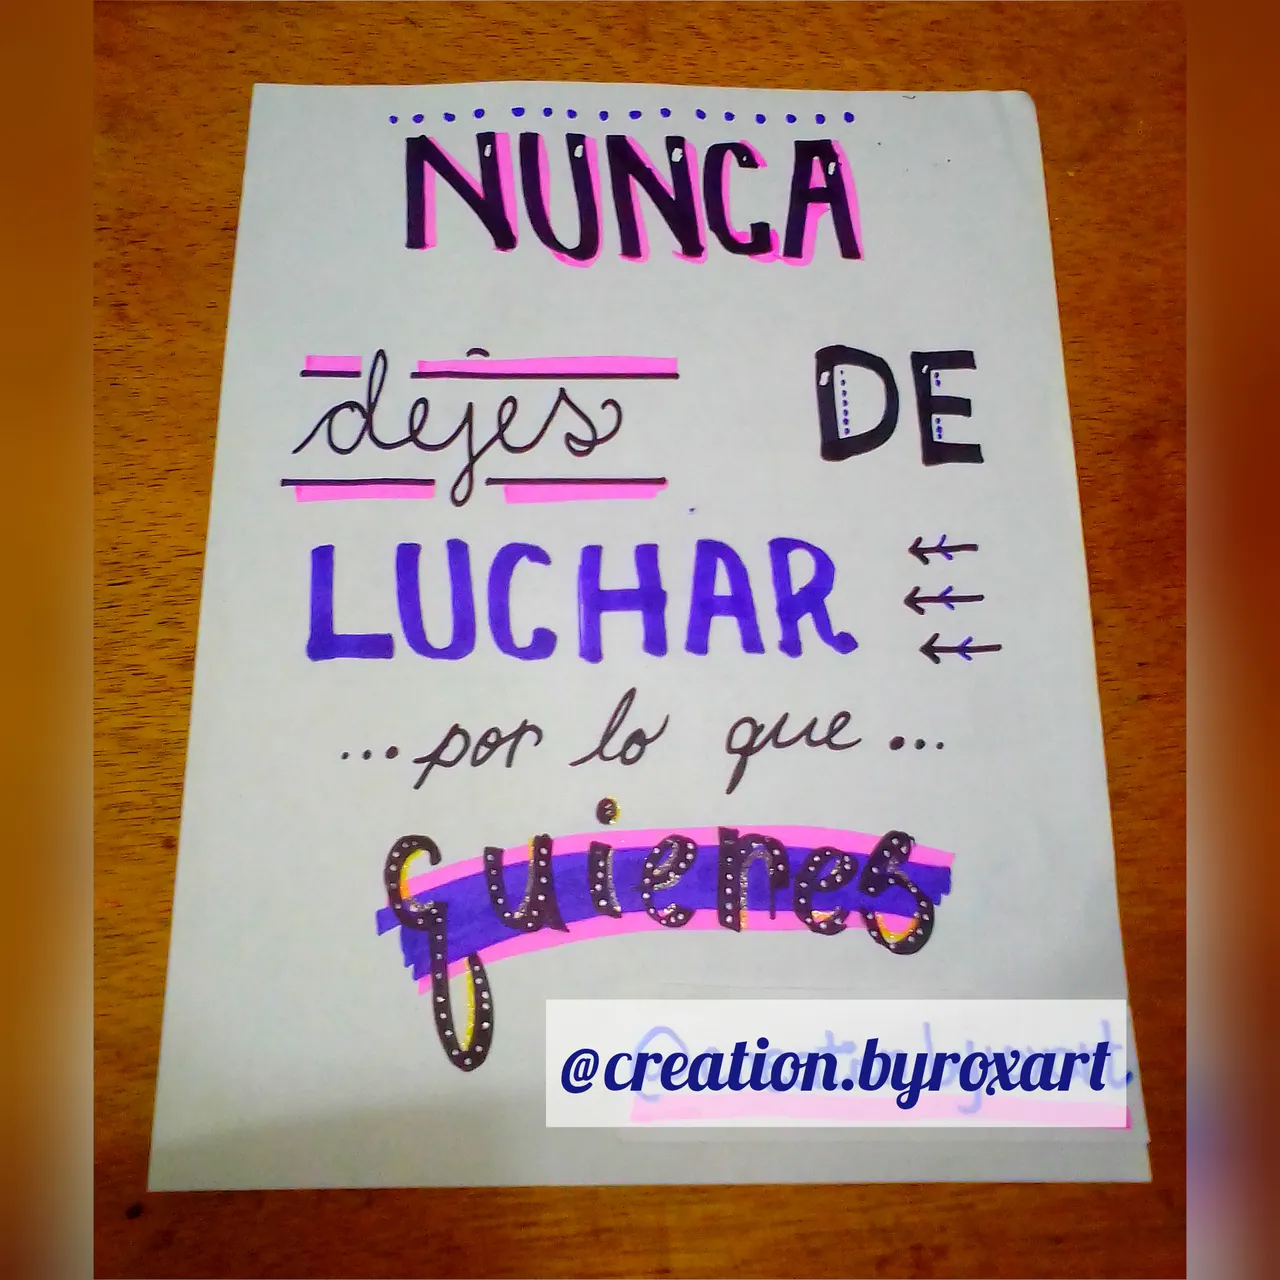 NUNCA
dejes DE
LUCHAR
...por lo que...
quieres
@creation.byroxart